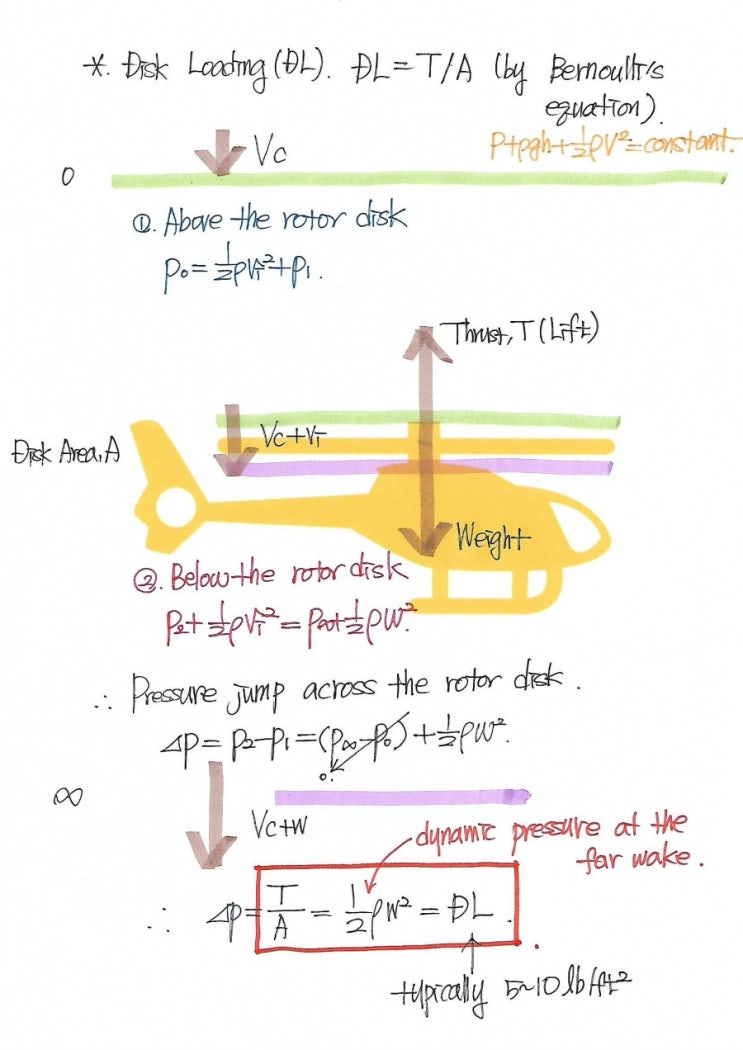 *. Disk Loading (DL). DL = T/A (by Bernoulli's
equation).
P+ρgh+½ρV²=constant.
Vc
0
①. Above the rotor disk
p₀ = ½ρVi² + p₁.
Thrust, T (Lift)
Vc+Vi
Disk Area, A
Weight
②. Below the rotor disk
p₂ + ½ρVi² = p∞ + ½ρW².
∴ Pressure jump across the rotor disk.
Δp = p₂ - p₁ = (p∞ - p₀) + ½ρW².
0.
∞
Vc+W
dynamic pressure at the
far wake.
∴ Δp = T/A = ½ρW² = DL.
typically 5~10 lb/ft²